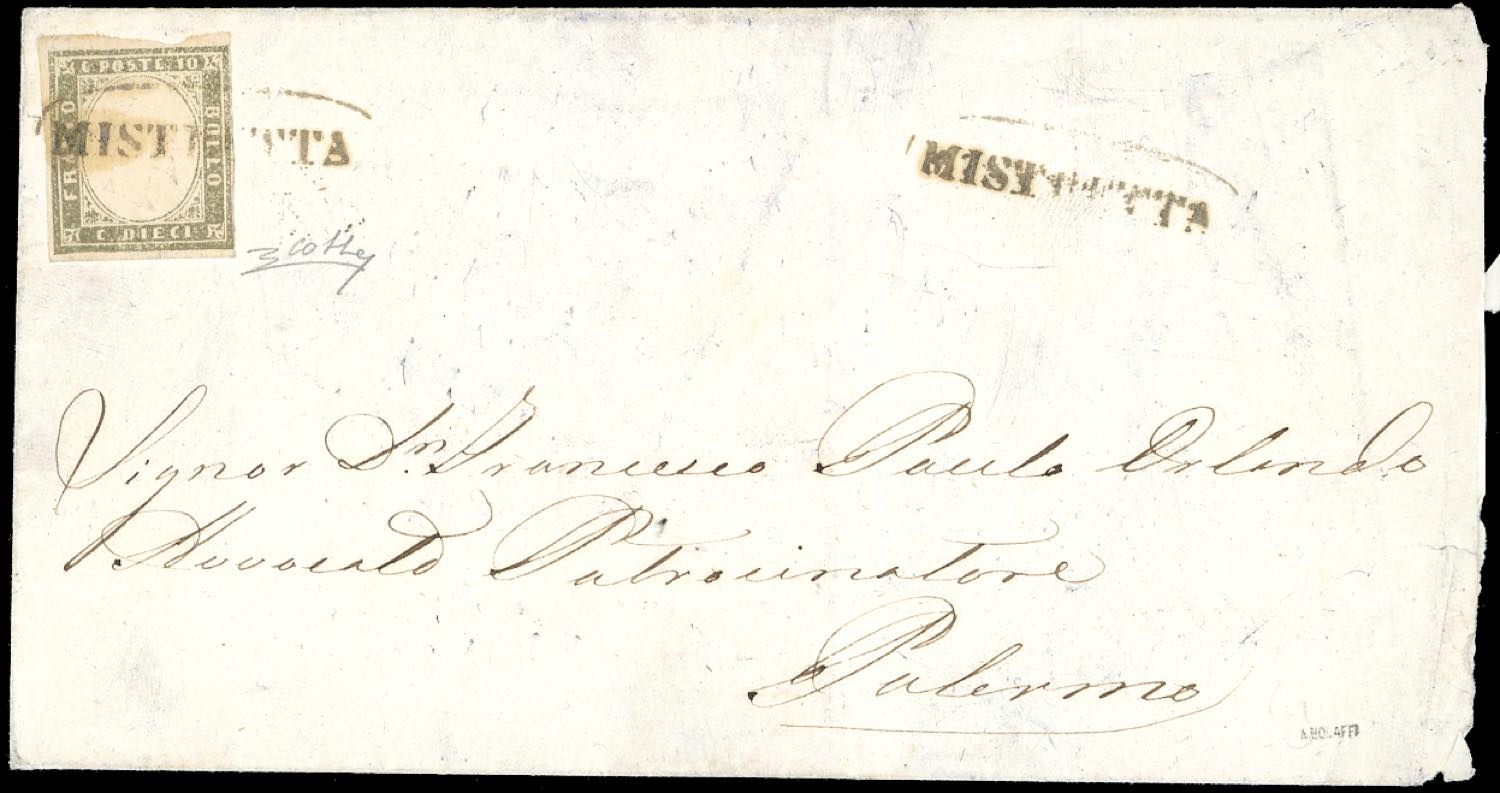 C. POSTE. 10
FRANCO
BOLLO
C. DIECI.
MISTRETTA
MISTRETTA
Signor Dn. Francesco Paulo Orlando
Avvocato Patrocinatore
Palermo
A. BOLAFFI